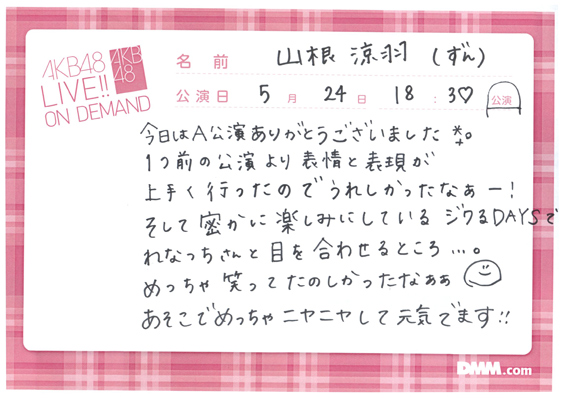 AKB48
LIVE!!
ON DEMAND
AKB
48
名前 山根 涼羽 (ずん)
公演日 5月 24日 18:30 公演
今日はA公演ありがとうございました *。
1つ前の公演より表情と表現が
上手く行ったのでうれしかったなぁー!
そして密かに楽しみにしているジワるDAYSで
れなっちさんと目を合わせるところ…。
めっちゃ笑ってたのしかったなぁぁ
あそこでめっちゃニヤニヤして元気でます!!
DMM.com